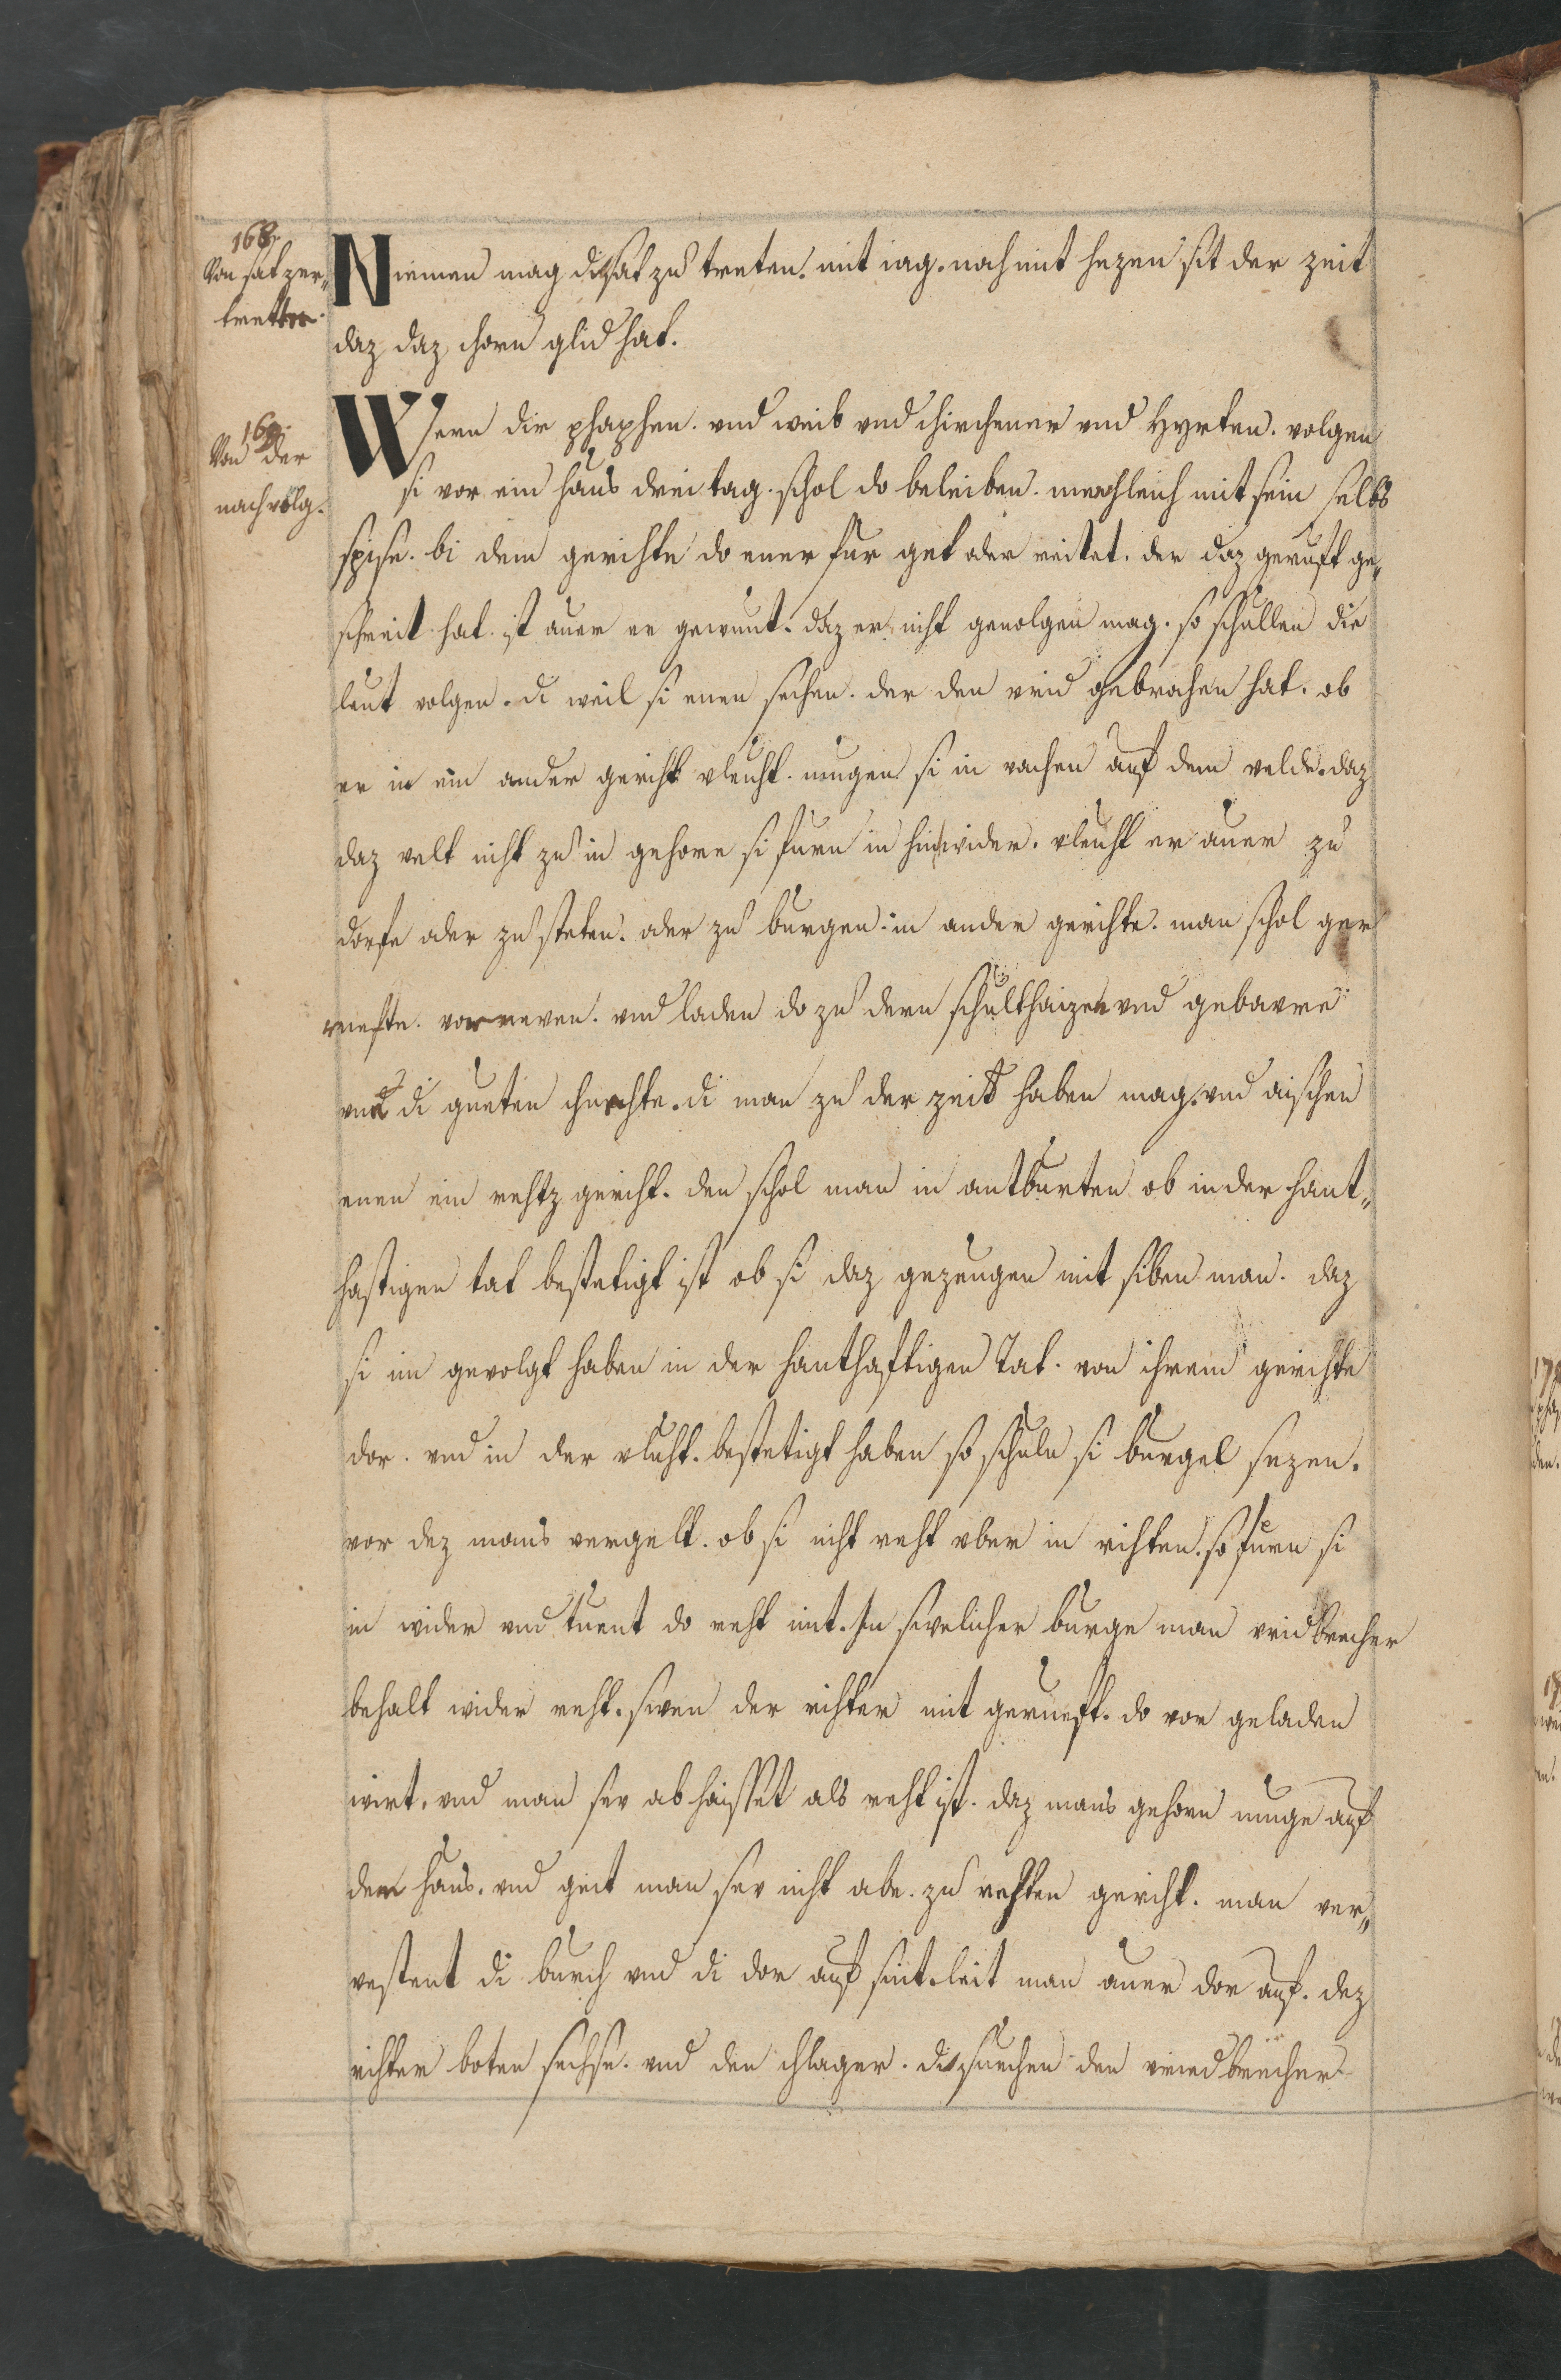 168.
Von sat zer„
tretten.
Niemen mag di sat zu treten. mit iag. noch mit hezen sit der zeit
daz daz chorn glid hat.
169.
Von der
nachvolg.
Wern die phaphen. vnd weib vnd chirchener vnd Hyrten. volgen
si vor ein haus drei tag. schol do beleiben. menchleich mit sein selbs
spise. bi dem gerichte do ener fur get oder reitet. der daz geruft ge„
schreit hat. ist auer er gewunt. daz er nicht geuolgen mag. so schullen die
leut volgen. di weil si enen sechen. der den vrid gebrochen hat. ob
er in ein ander gericht vleucht. mugen si in vachen auf dem velde. daz
daz velt nicht zu in gehore si furn in hin wider. vleucht er auer zu
dorfe oder zu steten. oder zu burgen. in ander gerichte. man schol ger
ruefte. vor neven. vnd laden do zu dem schulthaizen vnd gebavre
vnd di gueten chnechte. di man zu der zeit haben mag. vnd aischen
enen ein rehtz gericht. den schol man in antburten ob in der hant„
haftigen tat bestetigt ist ob si daz gezeugen mit siben man. daz
si im gevolgt haben in der hanthaftigen Tat. von ihrem gerichte
dor. vnd in der vlucht. bestetigt haben so schuln si burgel sezen.
vor dez mans vergelt. ob si nicht reht vber in richten. so furn si
in wider vnd tuent do reht mit. In swelicher burge man vridbrecher
behalt wider reht. swen der richter mit gerueft. do vor geladen
wirt. vnd man sev ab haisset als reht ist. daz mans gehorn muge auf
dem haus. vnd geit man sev nicht abe. zu rehten gericht. man ver„
vestent di burch vnd di dor auf sint. leit man auer dor auf. dez
richter boten sechse. vnd den chlager. di suechen den vriedbrecher